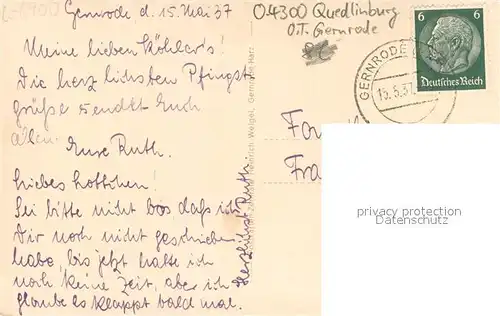 Gernrode d. 15. Mai 37
Meine lieben Köhler's!
Die herzlichsten Pfingst-
grüße sendet Euch
allen.
Eure Ruth.
Liebes Lottchen!
Sei bitte nicht bös daß ich
Dir noch nicht geschrieben
habe, bis jetzt hatte ich
noch keine Zeit, aber ich
glaube es klappt bald mal.
Herzlichst Ruth.
O4300 Quedlinburg
O.T. Gernrode
GERNRODE
15.5.37
6 6
Deutsches Reich
Weigel, Gernrode Harz
Fa
privacy protection
datenschutz